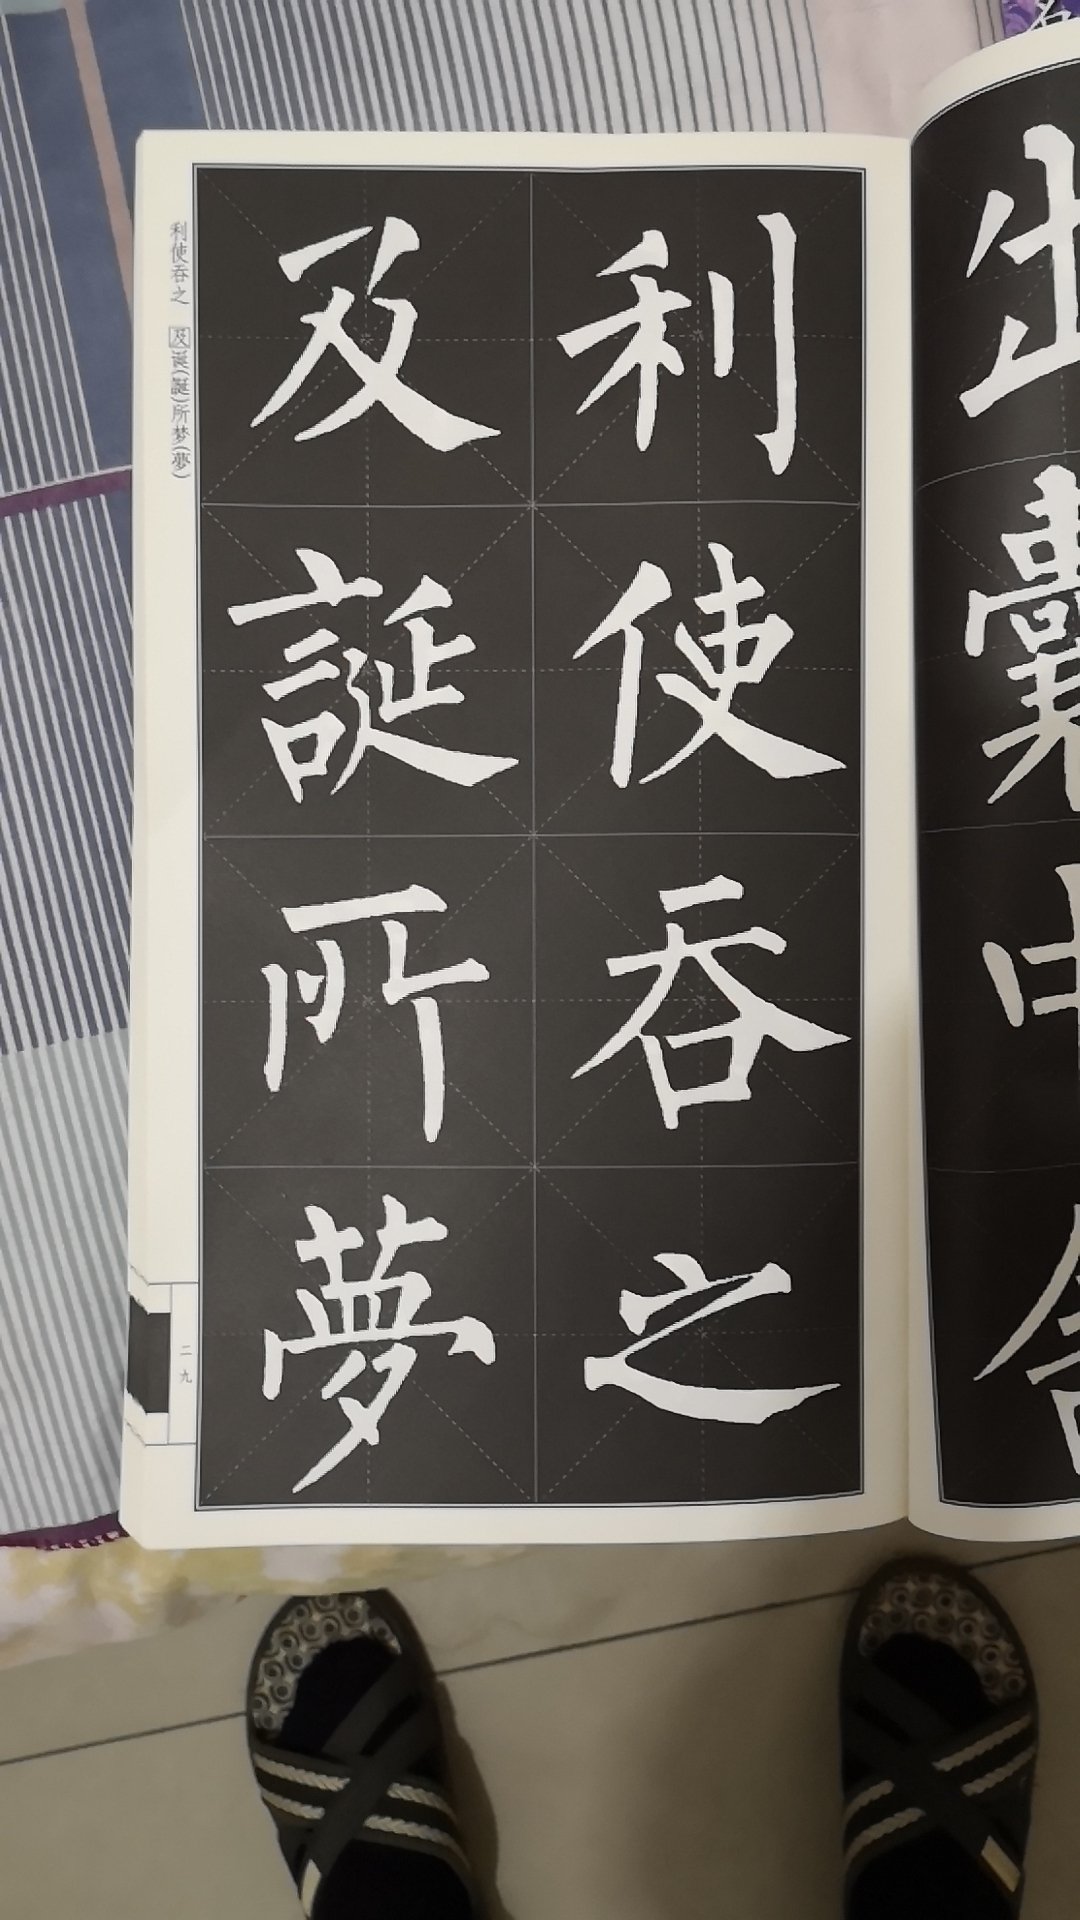 出囊中舍
利使吞之
及誕所夢
利使吞之　及诞(誕)所梦(夢)
二九